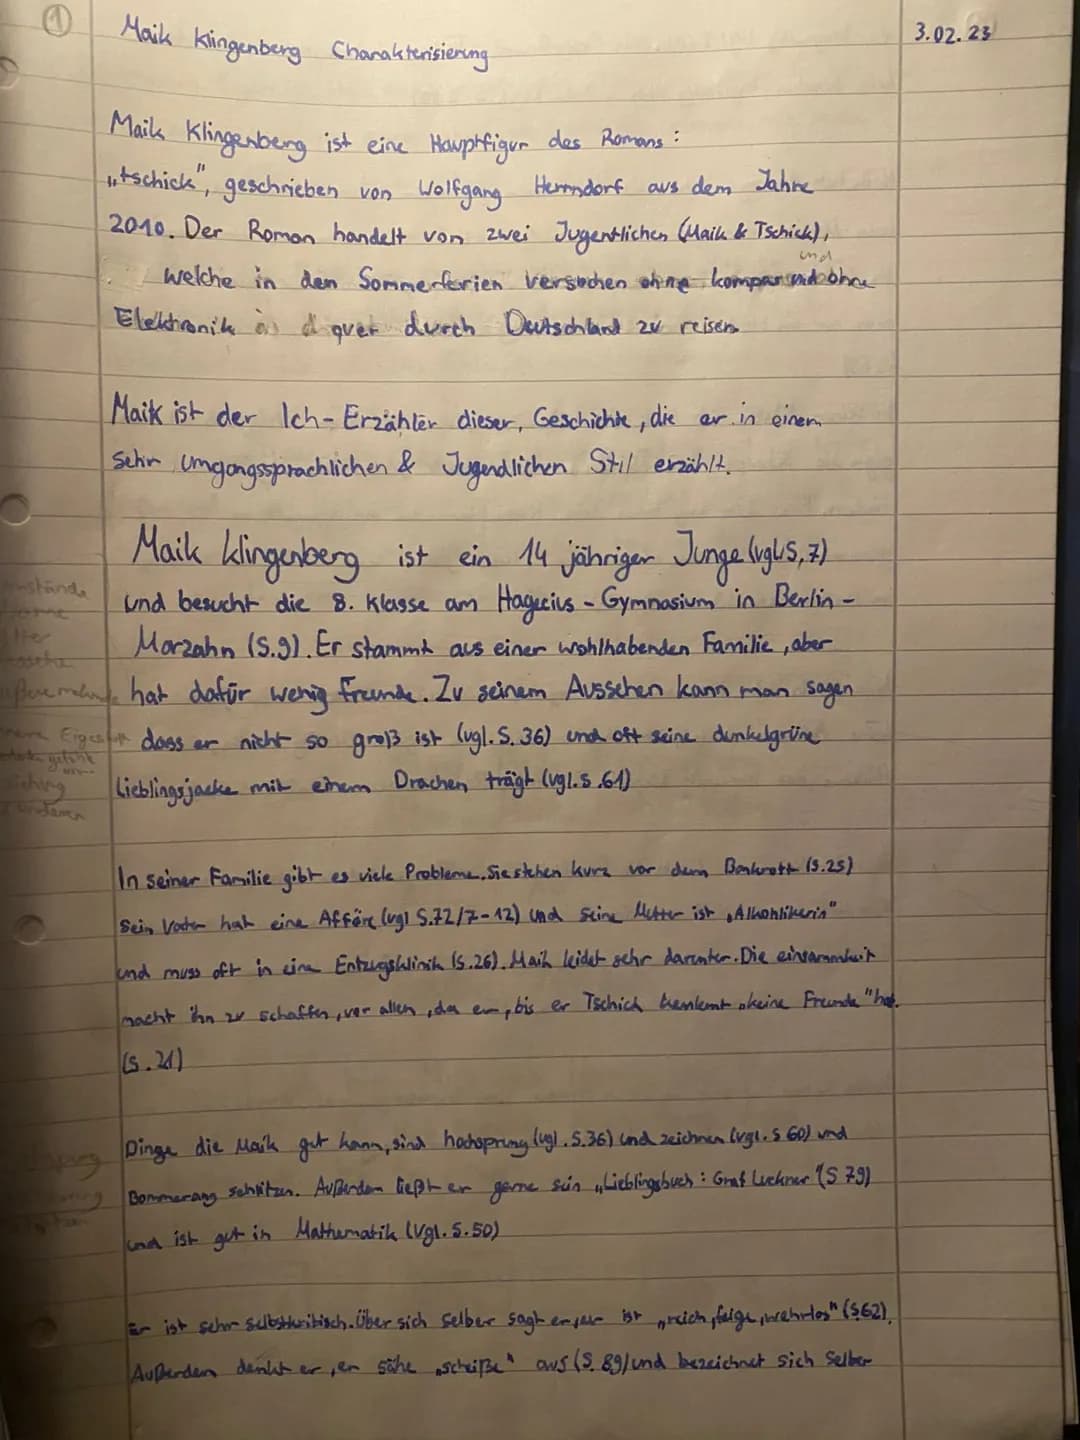 ①
Maik Klingenberg Charakterisierung
3.02.23
Maik Klingenberg ist eine Hauptfigur des Romans:
„tschick", geschrieben von Wolfgang Herrndorf aus dem Jahre
2010. Der Roman handelt von zwei Jugentlichen (Maik & Tschick),
und
welche in den Sommerferien versuchen ohne kompas und ohne
Elektronik quer durch Deutschland zu reisen
Maik ist der Ich-Erzähler dieser, Geschichte, die er in einem
sehr Umgangssprachlichen & Jugendlichen Stil erzählt.
Maik klingenberg ist ein 14 jähriger Junge (vgl. S, 7)
und besucht die 8. Klasse am Hagecius-Gymnasium in Berlin-
Marzahn (S.9). Er stammt aus einer wohlhabenden Familie, aber
hat dafür wenig Freunde. Zu seinem Aussehen kann man sagen
dass er nicht so groß ist (vgl. S. 36) und oft seine dunkelgrüne
Lieblingsjacke mit einem Drachen trägt (vgl. S.61)
In seiner Familie gibt es viele Probleme. Sie stehen kurz vor dem Bankrott (S.25)
Sein Vater hat eine Affäre (vgl S.72/7-12) und seine Mutter ist „Alkohlikerin"
und muss oft in eine Entzugsklinik (S.26). Maik leidet sehr darunter. Die einsammkeit
macht ihn zu schaffen, vor allen, da er, bis er Tschick kenlernt „keine Freunde" hat.
(S.21)
Dinge die Maik gut kann, sind hochsprung (vgl. S.36) und zeichnen (vgl. S 60) und
Bommerang schnitzen. Außerdem ließt er gerne sein „Lieblingsbuch: Graf Luckner" (S 79)
und ist gut in Mathematik (Vgl. S.50)
Er ist sehr selbstkritisch. Über sich selber sagt er, er ist „reich, feige, wehrlos" (S.62).
Außerdem denkt er, er sähe „scheiße" aus (S. 89) und bezeichnet sich selber